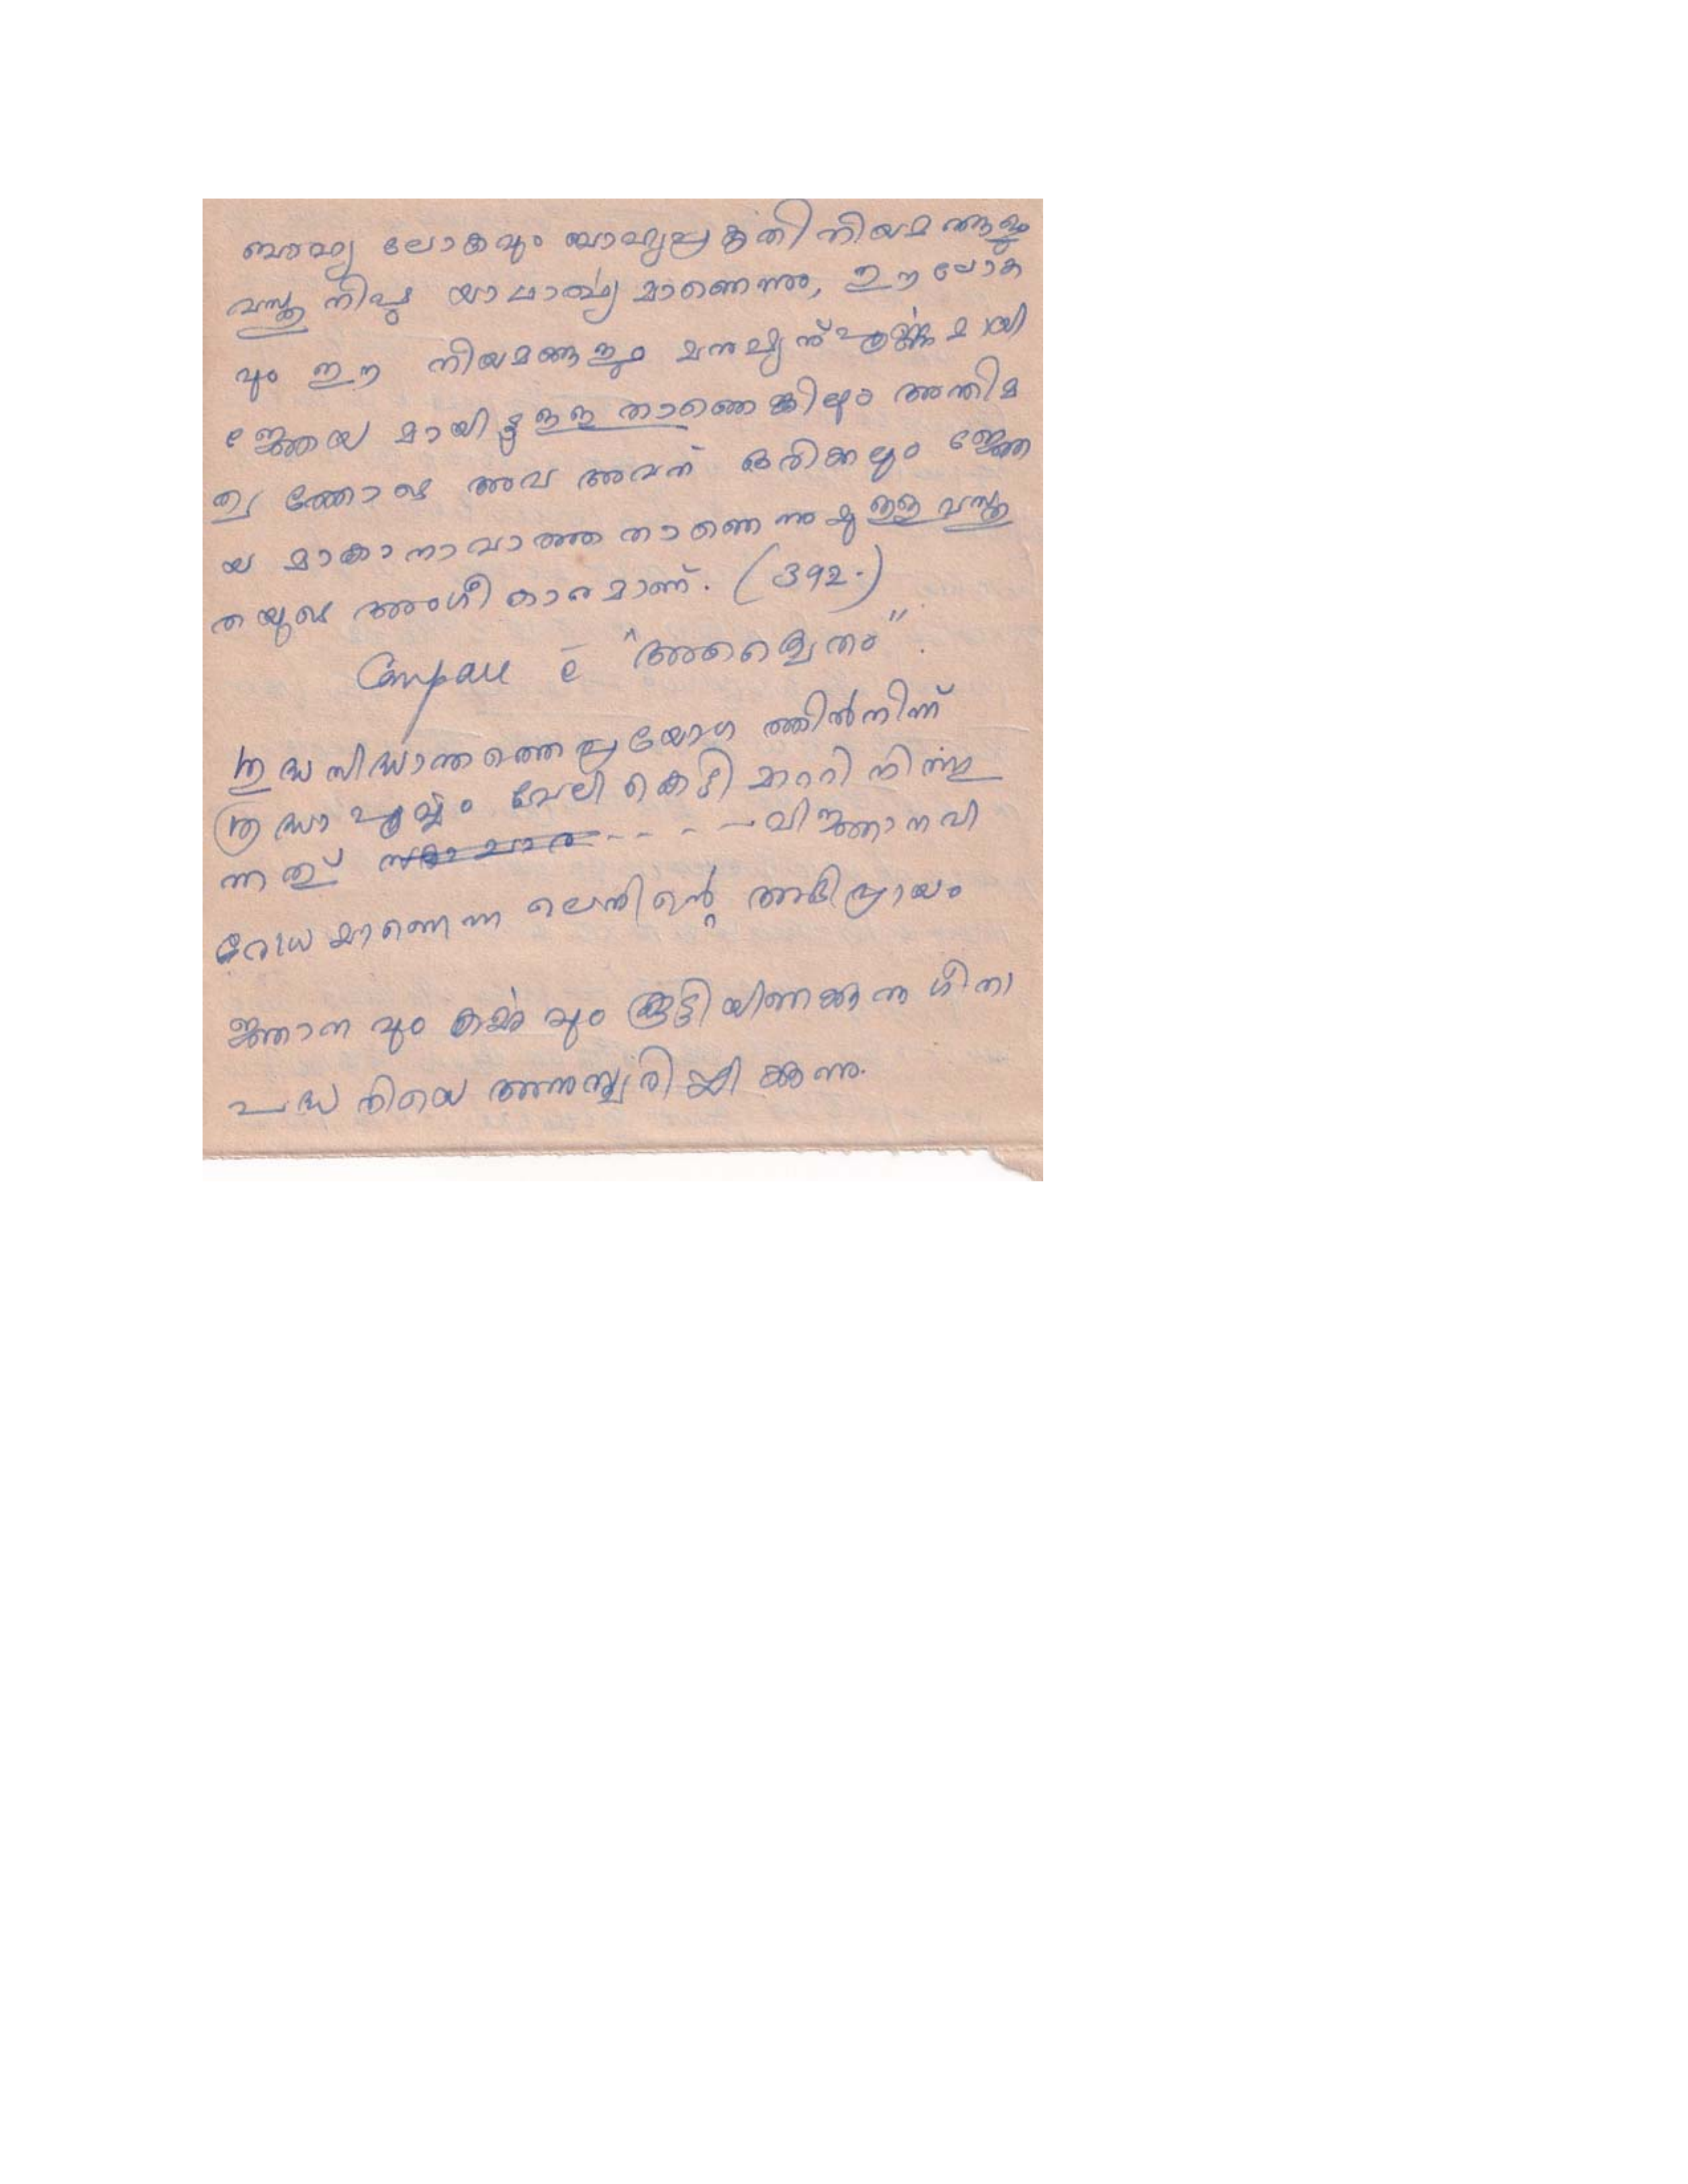 ബാഹ്യ ലോകവും ബാഹ്യപ്രകൃതി നിയമങ്ങളും
വസ്തുനിഷ്ഠ യാഥാർത്ഥ്യമാണെന്നും, ഈ ലോക
വും ഈ നിയമങ്ങളും മനുഷ്യന് പൂർണ്ണമായി
ജ്ഞേയമായിട്ടുള്ളതാണെങ്കിലും അന്തിമ
ത്വത്തോടെ അവ അവന് ഒരിക്കലും ജ്ഞേ
യമാകാനാവാത്തതാണെന്നുമുള്ള വസ്തു
തയുടെ അംഗീകാരമാണ്. (392.)
Compare c̄ "അദ്വൈതം".
ശുദ്ധസിദ്ധാന്തത്തെ പ്രയോഗത്തിൽനിന്ന്
ശ്രദ്ധാപൂർവ്വം വേലികെട്ടി മാററി നിറുത്തു
ന്നത് - - - - വിജ്ഞാനവി
രോധമാണെന്ന ലെനിന്റെ അഭിപ്രായം
ജ്ഞാനവും കർമ്മവും കൂട്ടിയിണക്കുന്ന ഗീതാ
പദ്ധതിയെ അനുസ്മരിപ്പിക്കുന്നു.